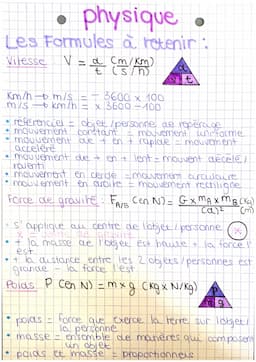 • physique •
Les Formules à retenir :
Vitesse V = d/t (m/km) (s/h)
d
v t
Km/h → m/s = ÷ 3600 x 100
m/s → km/h = x 3600 ÷ 100
• référenciel = objet / personne de repérage
• mouvement constant = mouvement uniforme
• mouvement de + en + rapide = mouvement
accéléré
• mouvement de + en + lent = mouvement décéléré /
ralenti
• mouvement en cercle = mouvement circulaire
• mouvement en droite = mouvement rectiligne
Force de gravité : F A/B (en N) = G x mA x mB (kg) / (d)² (m)
• s'applique au centre de l'objet / personne
• + la masse de l'objet est haute + la force l'
est
• + la distance entre les 2 objets / personnes est
grande - la force l'est
Poids P (en N) = m x g (kg x N/kg)
P
m g
• poids = force que exerce la terre sur l'objet /
la personne
• masse = ensemble de matières qui composent
un objet
• poids et masse = proportionnels